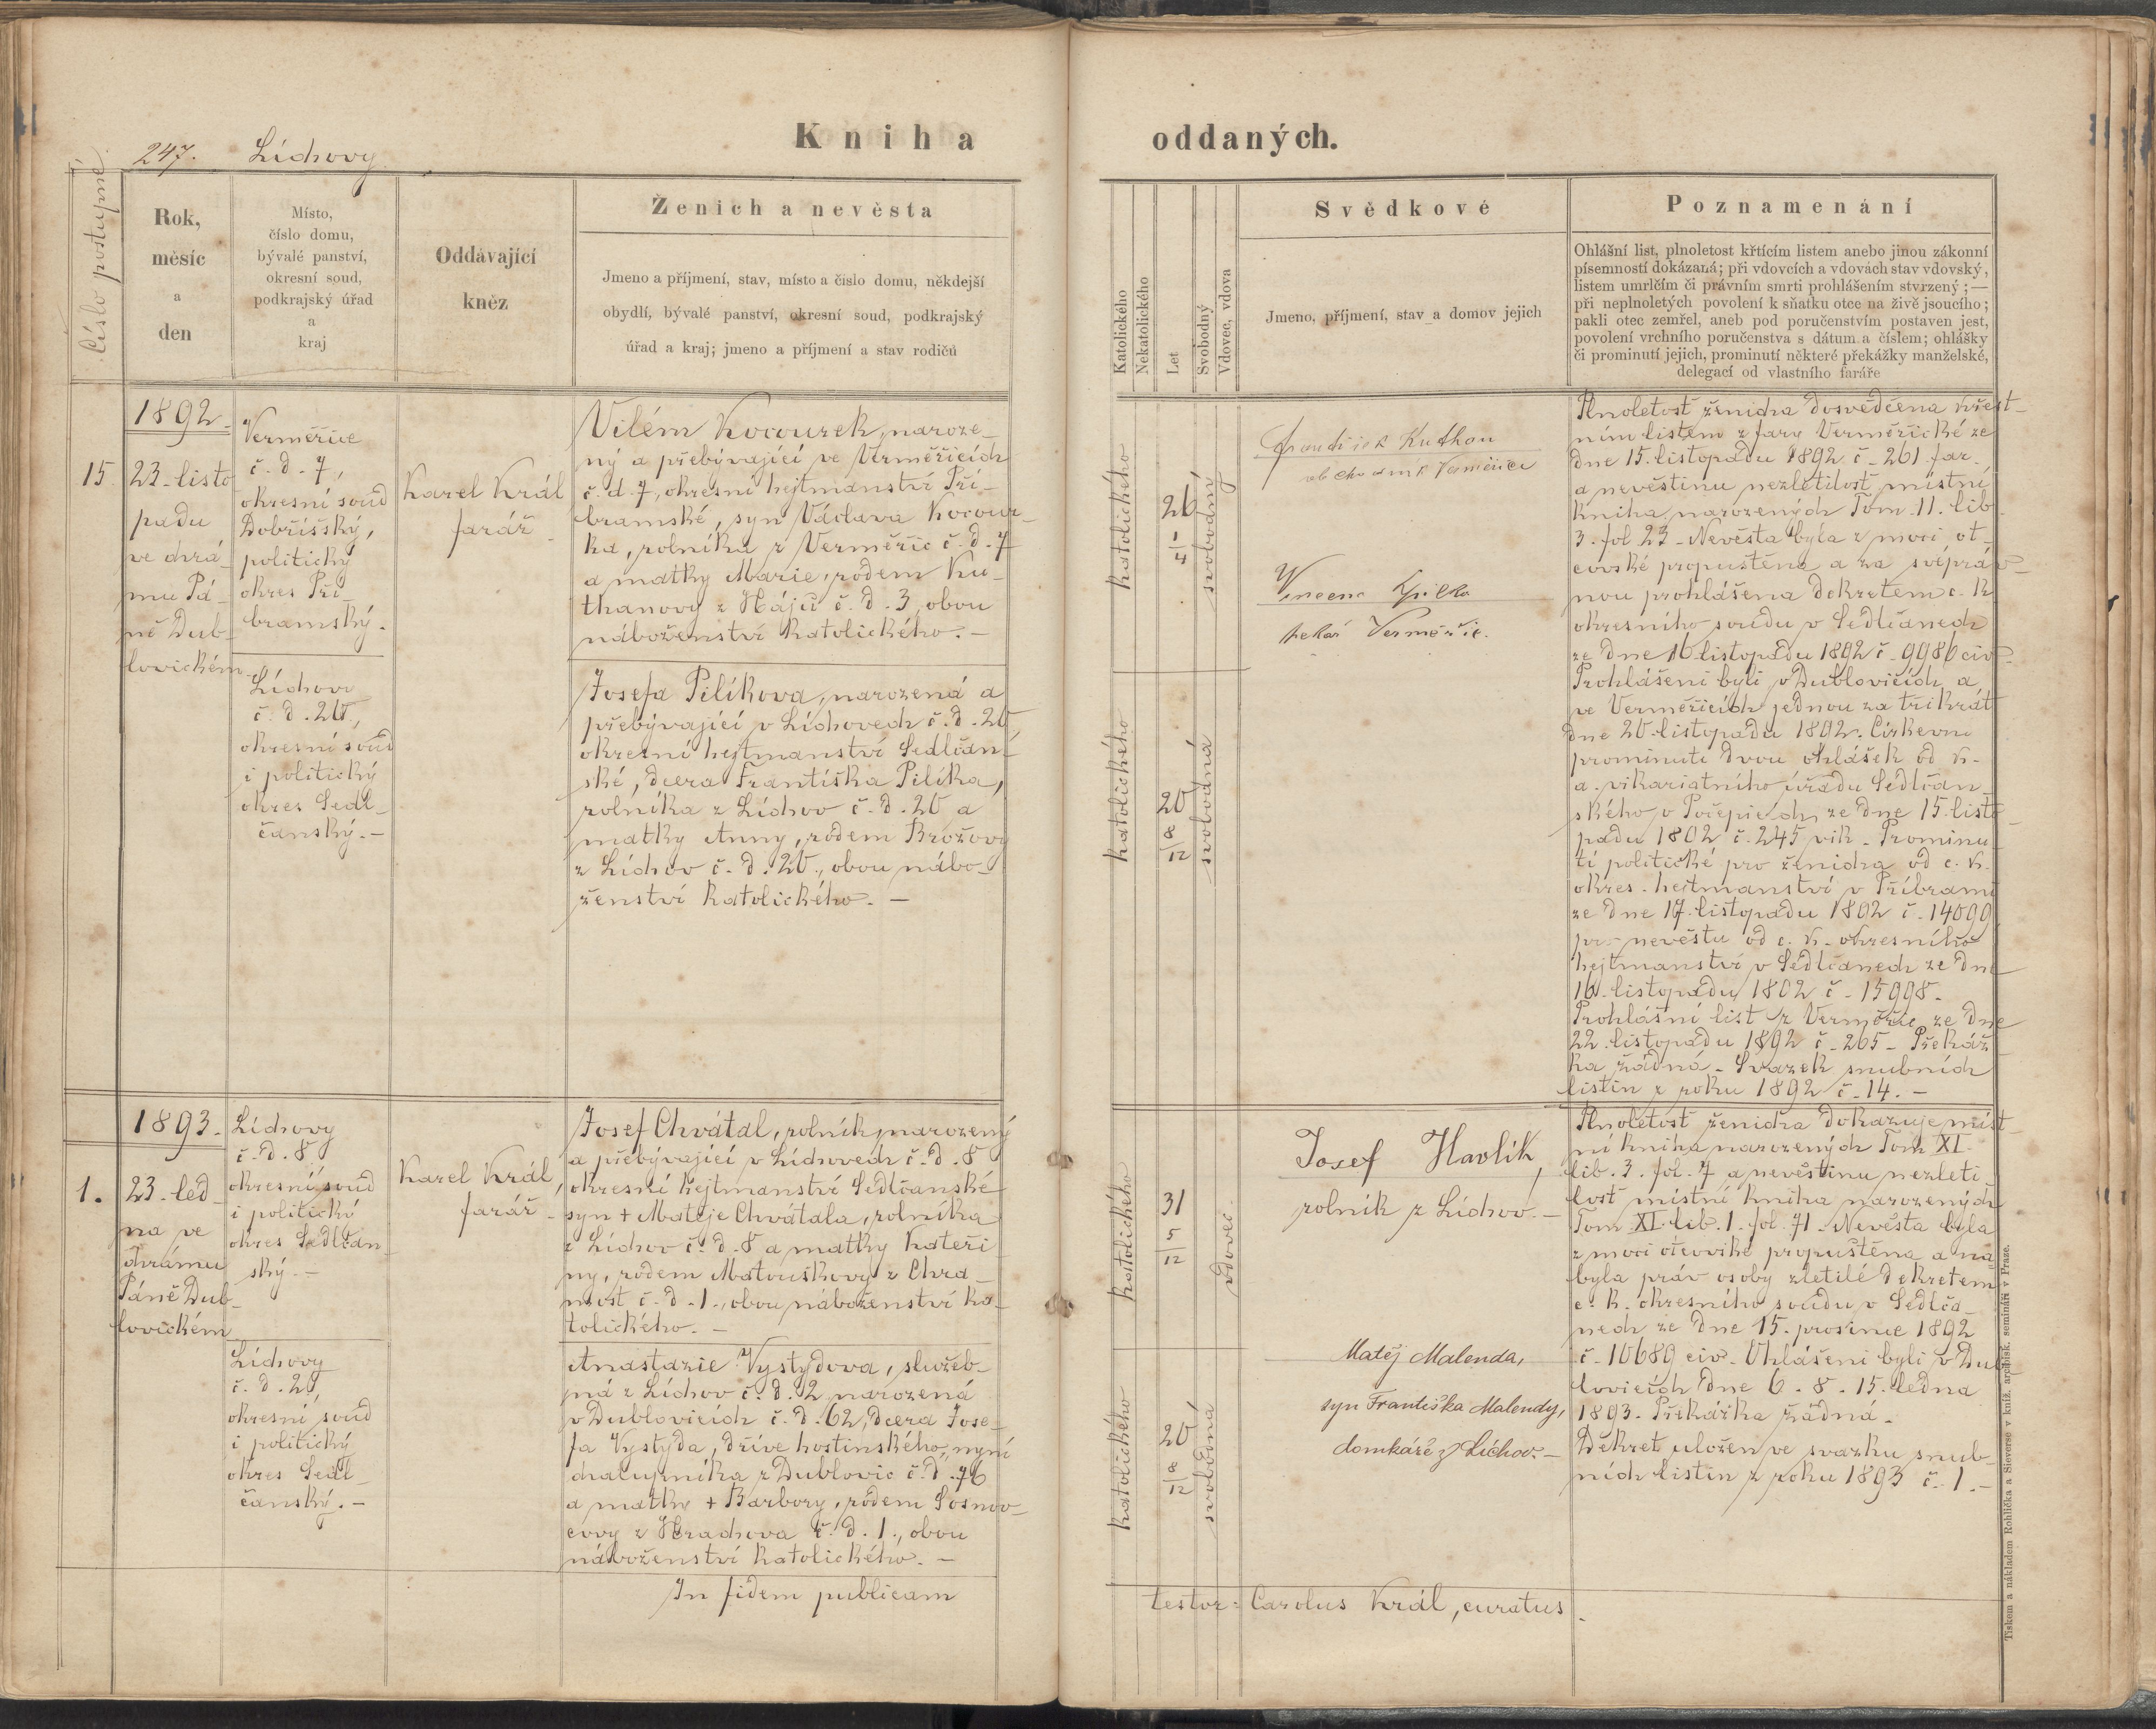 Kniha oddaných.
247. Líchovy
Číslo postupné
Rok,
měsíc
a
den
Místo,
číslo domu,
bývalé panství,
okresní soud,
podkrajský úřad
a
kraj
Oddávající
kněz
Ženich a nevěsta
Jmeno a příjmení, stav, místo a číslo domu, někdejší
obydlí, bývalé panství, okresní soud, podkrajský
úřad a kraj; jmeno a příjmení a stav rodičů
Katolického
Nekatolického
Let
Svobodný
Vdovec, vdova
Svědkové
Jmeno, příjmení, stav a domov jejich
Poznamenání
Ohlášní list, plnoletost křtícím listem anebo jinou zákonní
písemností dokázaná; při vdovcích a vdovách stav vdovský,
listem umrlčím či právním smrti prohlášením stvrzený; —
při neplnoletých povolení k sňatku otce na živě jsoucího;
pakli otec zemřel, aneb pod poručenstvím postaven jest,
povolení vrchního poručenstva s dátum a číslem; ohlášky
či prominutí jejich, prominutí některé překážky manželské,
delegací od vlastního faráře
15.
1892.
23. listo
padu
ve chrá-
mu Pá-
ně Dub-
lovickém.
Verměřice
č. d. 7,
okresní soud
Dobříšský,
politický
okres Pří-
bramský.
Líchovy
č. d. 20,
okresní soud
i politický
okres Sedl-
čanský. –
Karel Král
farář.
Vilém Kocourek, naroze-
ný a přebývající ve Verměřicích
č. d. 7, okresní hejtmanství Pří-
bramské, syn Václava Kocour-
ka, rolníka z Verměřic č. d. 7
a matky Marie, rodem Ku-
thanovy z Hájů č. d. 3, obou
náboženství katolického. –
Josefa Pilíkova, narozená a
přebývající v Líchovech č. d. 20
okresní hejtmanství Sedlčan-
ské, dcera Františka Pilíka,
rolníka z Líchov č. d. 20 a
matky Anny, rodem Brožovy
z Líchov č. d. 20., obou nábo-
ženství katolického. –
katolického
26
1/4
svobodný
katolického
20
8/12
svobodná
Kuthan
obchodník Verměřice
pekař Verměřic.
Plnoletost ženicha dosvědčena křest-
ním listem z fary Verměřické ze
dne 15. listopadu 1892 č. 261 far.
a nevěstinu nezletilost místní
kniha narozených Tom. 11. lib
3. fol 23 – Nevěsta byla z moci ot-
covské propuštěna a za svépráv-
nou prohlášena dekretem c. k.
okresního soudu v Sedlčanech
ze dne 16 listopadu 1892 č. 9986 civ.
Prohlášeni byli v Dublovicích a
ve Verměřicích jednou za třikrát
dne 20. listopadu 1892. Církevní
prominutí dvou ohlášek od k.
a. vikariatního úřadu Sedlčan-
ského v Počepicích ze dne 15. listo
padu 1892 č. 245 vik. Prominu-
tí politické pro ženicha od c. k.
okres. hejtmanství v Příbrami
ze dne 17. listopadu 1892 č. 14099
pro nevěstu od c. k. okresního
hejtmanství v Sedlčanech ze dne
16. listopadu 1892 č. 15998.
Prohlášní list z Verměřic ze dne
22. listopadu 1892 č. 265 – Překáž-
ka žádná – Svazek snubních
listin z roku 1892 č. 14. –
1.
1893.
23. led-
na ve
chrámu
Páně Dub-
lovickém
Líchovy
č. d. 8
okresní soud
i politický
okres Sedlčan-
ský. –
Líchovy
č. d. 2,
okresní soud
i politický
okres Sedl-
čanský. –
Karel Král,
farář.
Josef Chvátal, rolník, narozený
a přebývající v Líchovech č. d. 8
okresní hejtmanství Sedlčanské
syn + Matěje Chvátala, rolníka
z Líchov č. d. 8 a matky Kateři-
ny, rodem Matouškovy z Chra-
most č. d. 1., obou náboženství ka-
tolického. –
Anastazie Vystydova, služeb-
ná z Líchov č. d. 2 narozená
v Dublovicích č. d. 62, dcera Jose-
fa Vystyda, dříve hostinského, nyní
chalupníka z Dublovic č. d. 76
a matky + Barbory, rodem Sosnov-
covy z Hrachova č. d. 1., obou
náboženství katolického. –
katolického
31
5/12
vdovec
katolického
20
8/12
svobodná
Josef Havlík,
rolník z Líchov. –
Matěj Malenda,
syn Františka Malendy,
domkáře z Líchov. –
Plnoletost ženicha dokazuje míst-
ní kniha narozených Tom XI.
lib. 3. fol. 7 a nevěstinu nezleti-
lost místní kniha narozených
Tom. XI. lib. 1. fol. 71. Nevěsta byla
z moci otcovské propuštěna a na-
byla práv osoby zletilé dekretem
c. k. okresního soudu v Sedlča-
nech ze dne 15. prosince 1892
č. 10689 civ. Ohlášeni byli v Dub
lovicích dne 6. 8. 15. ledna
1893. Překážka žádná.
Dekret uložen ve svazku snub-
ních listin z roku 1893 č. 1. –
In fidem publicam testor: Carolus Král, curatus.
Tiskem a nákladem Rohlíčka a Sieverse v kníž. arcibisk. semináři v Praze.